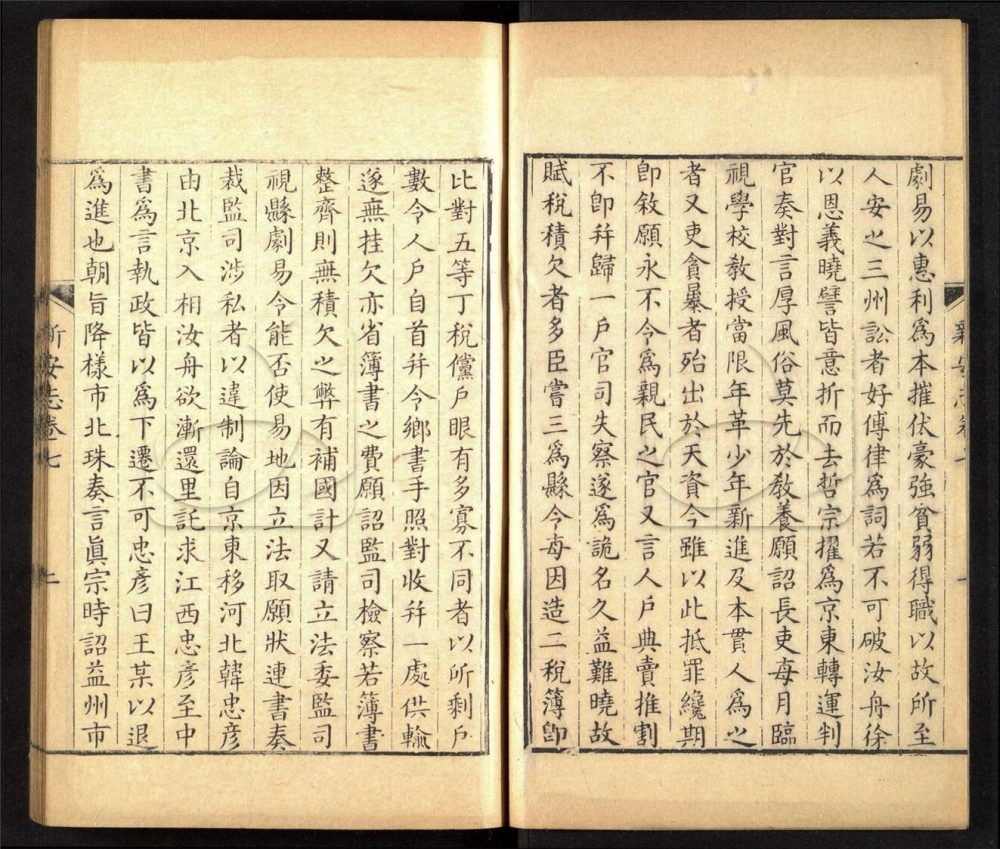 劇易以惠利爲本摧伏豪強貧弱得職以故所至
人安之三州訟者好傳律爲詞若不可破汝舟徐
以恩義曉譬皆意折而去哲宗擢爲京東轉運判
官奏對言厚風俗莫先於敎養願詔長吏每月臨
視學校敎授當限年革少年新進及本貫人爲之
者又吏貪暴者殆出於天資今雖以此抵罪纔期
卽敘願永不令爲親民之官又言人戶典賣推割
不卽幷歸一戶官司失察遂爲詭名久益難曉故
賦稅積欠者多臣嘗三爲縣令每因造二稅簿卽
新安志卷七
比對五等丁稅儻戶眼有多寡不同者以所剩戶
數令人戶自首幷令鄉書手照對收幷一處供輸
遂無挂欠亦省簿書之費願詔監司檢察若簿書
整齊則無積欠之弊有補國計又請立法委監司
視縣劇易令能否使易地因立法取願狀連書奏
裁監司涉私者以違制論自京東移河北韓忠彦
由北京入相汝舟欲漸還里託求江西忠彦至中
書爲言執政皆以爲下遷不可忠彦曰王某以退
爲進也朝旨降樣市北珠奏言眞宗時詔益州市
新安志卷七